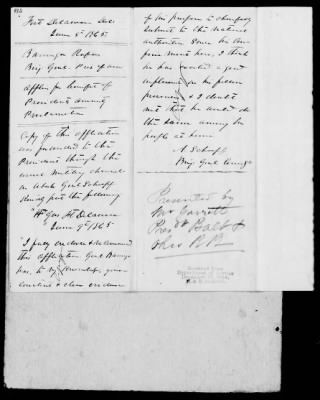 Fort Delaware Del
June 5th 1865
Barringer Rufus
Brig Genl. Pris of war
Applies for benefit of
President's Amnesty
Proclamation
Copy of this application
was forwarded to the
President through the
same military channel
on which Genl Schoepf
the following
"Hd Qrs Ft Delaware
June 9th 1865
"I fully endorse & recommend
this application. Genl Barringer
has, to my knowledge, given
& clear evidence
of his purpose to
submit to the National
authorities. Since he has
been here, I think
he has exerted a good
influence on his fellow
prisoners & I doubt
not that he would do
the same among his
people at home
A. Schoepf
Brig Genl Comdg
Presented by
Mr Garrett
Presdt Balt &
Ohio R.R.